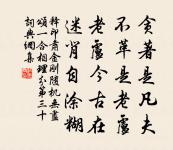 貪著是凡夫
不著是老盧
老盧今古在
迷者自涂糊
釋印肅金剛隨機無盡
頌一合相理分第三十
詞典網集